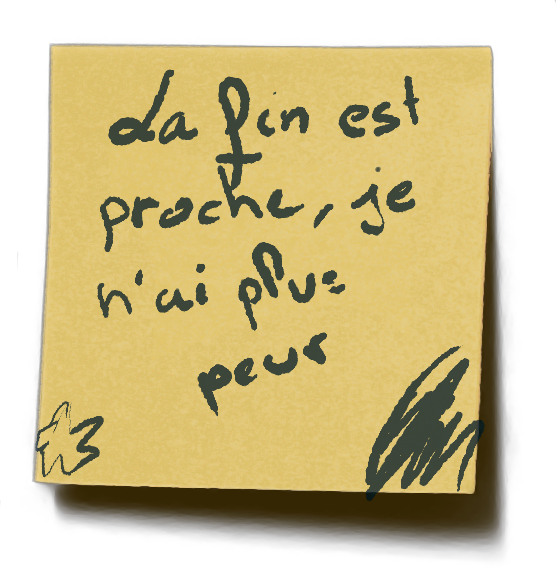 La fin est
proche, je
n'ai plus
peur
#3